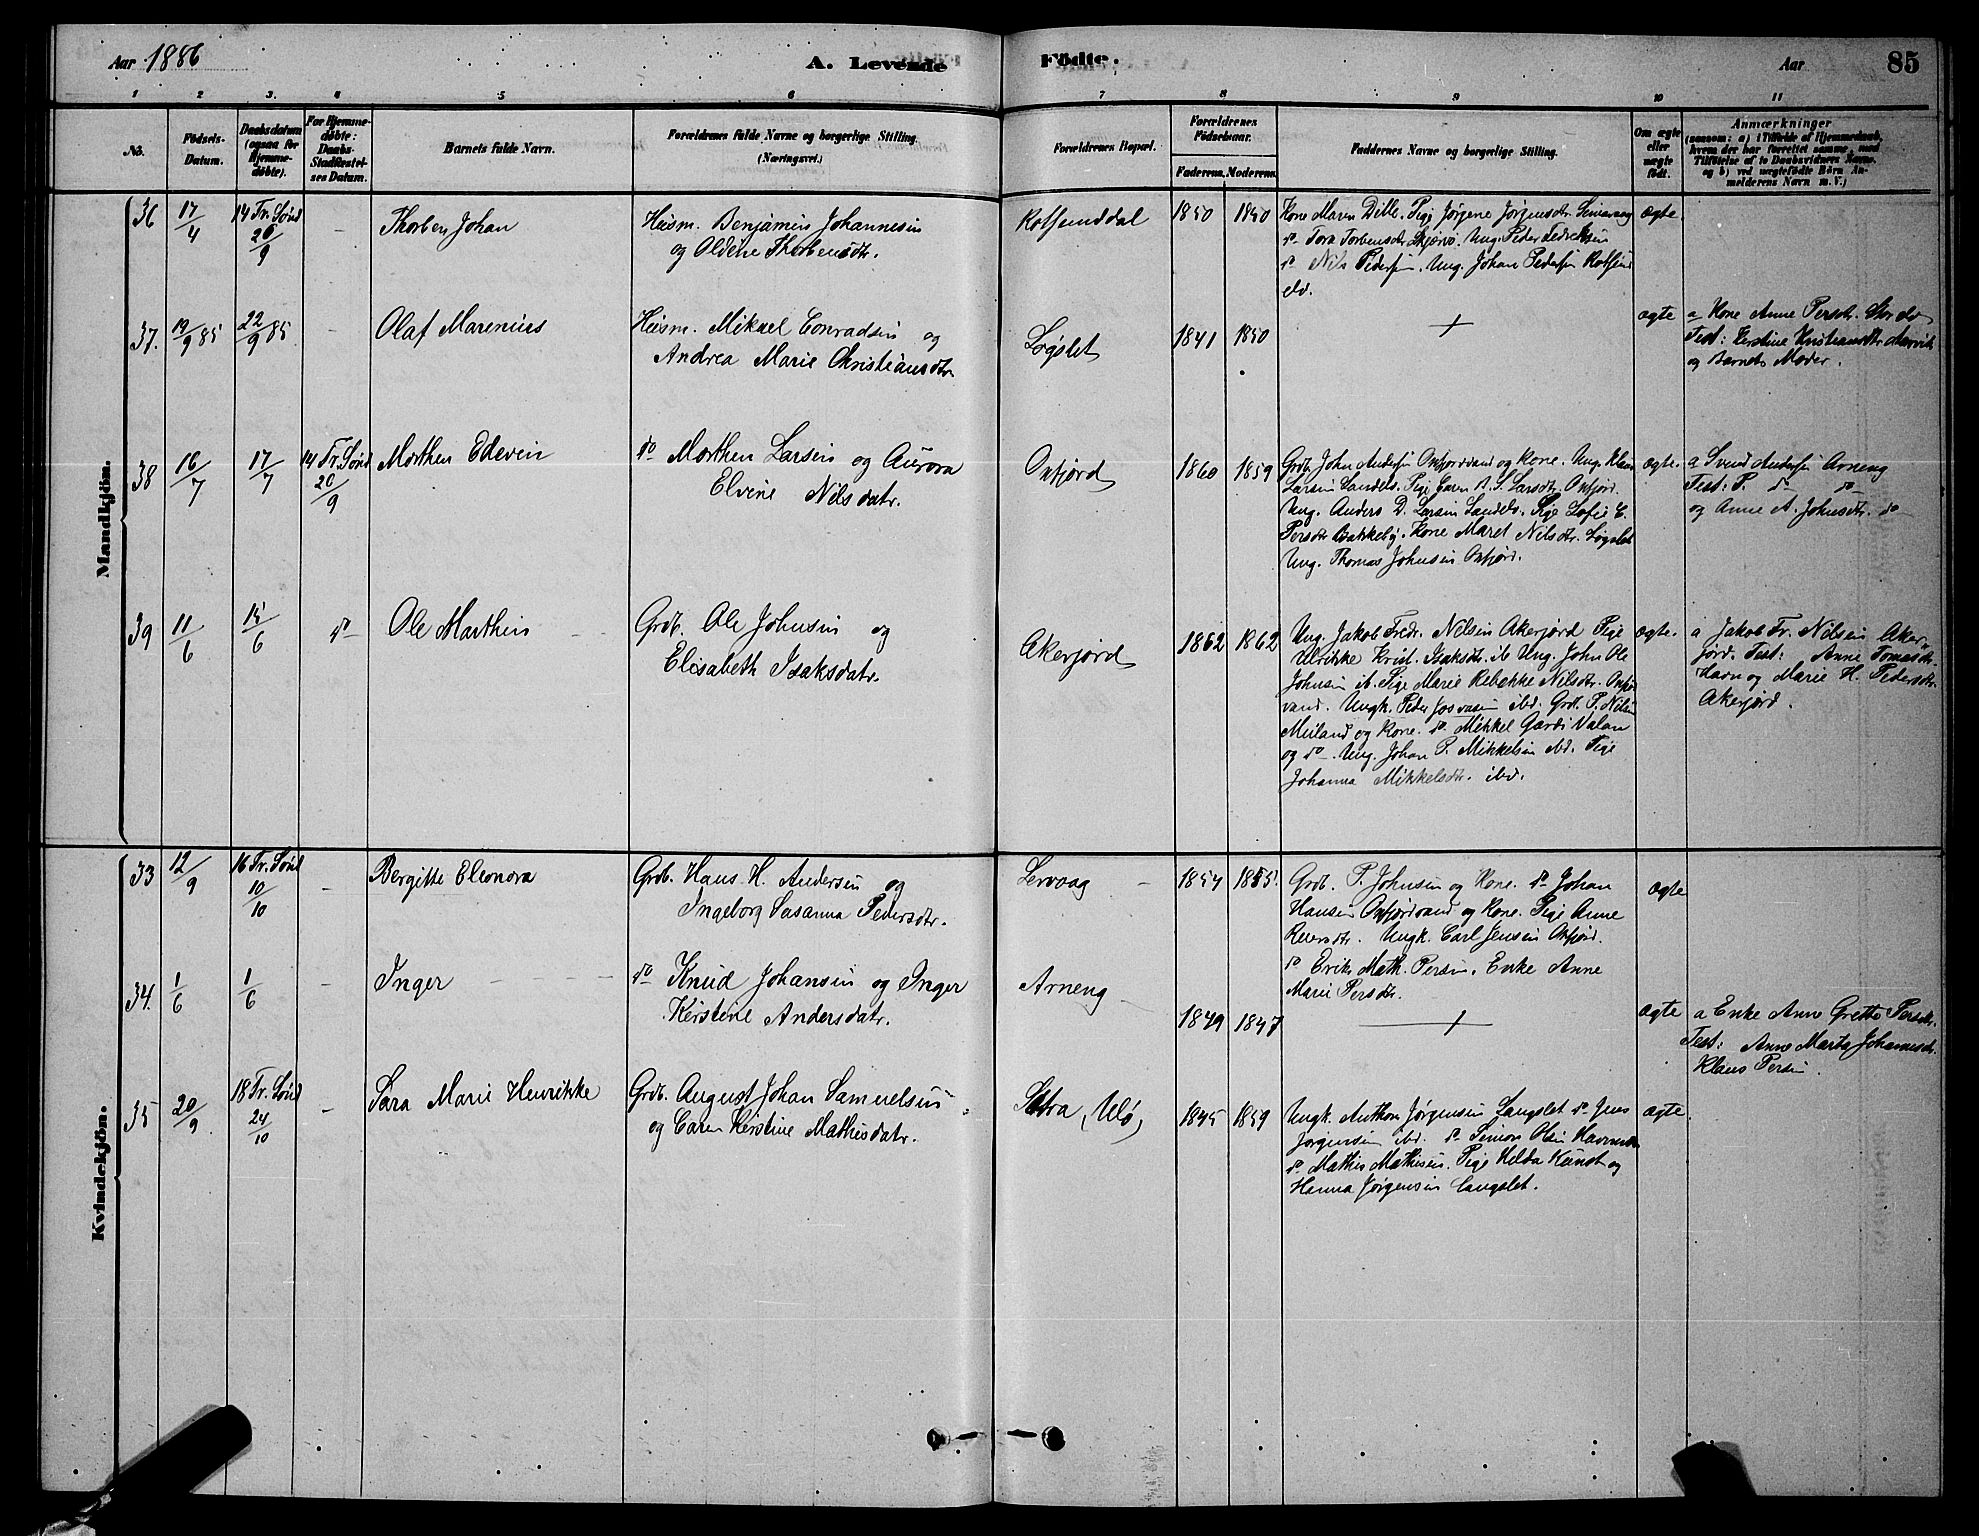 Aar 1886
A. Levende
Födte.
Aar
85
1 2 3. 4 5 6 7 8 9 10 11
No.
Födsels-Datum.
Daabsdatum (ogsaa for Hjemme-döbte).
For Hjemme-döbte: Daabs-Stadfæstel-ses Datum.
Barnets fulde Navn.
Forældrenes fulde Navne og borgerlige Stilling.
(Næringsvei.)
Forældrenes Bopæl.
Forældrenes Födselsaar.
Faderens. Moderens.
Faddernes Navne og borgerlige Stilling.
Om ægte eller uægte födt.
Anmærkninger
(saasom: a) i Tilfælde af Hjemmedaab, hvem der har forrettet samme, med Tilföielse af to Daabsvidners Navne. og b) ved uægtefödte Börn An-melderens Navn m. V.)
Mandkjön.
36 17/4 14 Tr. Sønd 26/9 - Thorben Johan
Huusm. Benjamin Johannesen
og Oldine Thorbensdtr.
Rotsunddal 1850 1850
Kone Maren Dille. Pige Jørgine Jørgensdtr
do Tora Torbensdtr Skjærvø. Ung. Peder
do Nils Pedersen. Ung. Johan Pedersen Rotsund
elv.
ægte.
37. 19/9 85 22/9 85 - Olaf Marenius
Huusm. Mikael Conradsen og
Andrea Marie Christiansdtr
Løgslet 1841 1850
+
ægte
a Kone Anne Persdtr. Storelv
Test: Kerstine Kristiansdtr
og Barnets Moder.
38 16/7 17/7 14 Tr. Sønd 26/9 Morthen Edevin
do Morthen Larsen og Aurora
Elvine Nilsdatr.
Oxfjord 1860 1859
Grdb. John Andersen Oxfjordvand og Kone. Ung. Klaus
Larsen Sandelv. Pige Caren A. S. Larsdtr. Oxfjord.
Ung. Anders D. Larsen Sandelv. Pige Sofie E.
Persdtr Bakkeby. Kone Maret Nilsdtr. Løgslet
Ung. Thomas Johnsen Oxfjord.
ægte.
a Svend Andersen Arneng
Test: P. do do
og Anne A. Johnsdtr. do
39 11/6 15/6 do Ole Marthin
Grdb. Ole Johnsen og
Elisabeth Isaksdatr.
Akerjord 1862 1862
Ung. Jakob Fredr. Nilsen Akerjord Pige
Ulrikke Krist. Isaksdtr. ib Ung. John Ole
Johnsen ib. Pige Marie Rebekke Nilsdtr. Oxfjor
vand. Ungk. Peder ibd. Grdb. P. Nilsen
Meiland og Kone. do Mikkel Valan
og do Ung. Johan P. Mikkelsen ibd. Pige
Johanna Mikkelsdtr. ibd.
ægte.
a Jakob Fr. Nilsen Aker-
jord. Test: Anne Tomasdtr.
Havn og Marie H. Pedersdtr.
Akerjord.
Kvindekjön.
33 12/9 16 Tr. Sønd 10/10 - Bergitte Eleonora
Grdb. Hans H. Andersen og
Ingeborg Susanna Pedersdtr.
Lervaag 1854 1855.
Grdb. P. Johnsen og Kone. do Johan
Hansen Oxfjordvand og Kone. Pige Anne
Reiersdtr. Ungk. Carl Jensen Oxfjord.
do Erik Math. Persen. Enke Anne
Marie Persdtr.
ægte
34. 1/6 1/6 - Inger
do Knud Johansen og Inger
Kerstine Andersdatr.
Arneng 1849 1847
+
ægte
a Enke Anne Grethe Persdtr.
Test: Anne Marta Johannesdtr.
Klaus Persen.
35 20/9 18 Tr. Sønd 24/10 - Sara Marie Henrikke
Grdb. August Johan Samuelsen
og Caren Kerstine Mathisdatr.
Sætra, Ulø, 1845 1859
Ungk. Anthon Jørgensen Langslet do Jens
Jørgensen ibd. do Simon Olsen Havnnes
do Mathis Mathisen. Pige Helda Kunst og
Hanna Jørgensen Langslet.
ægte.